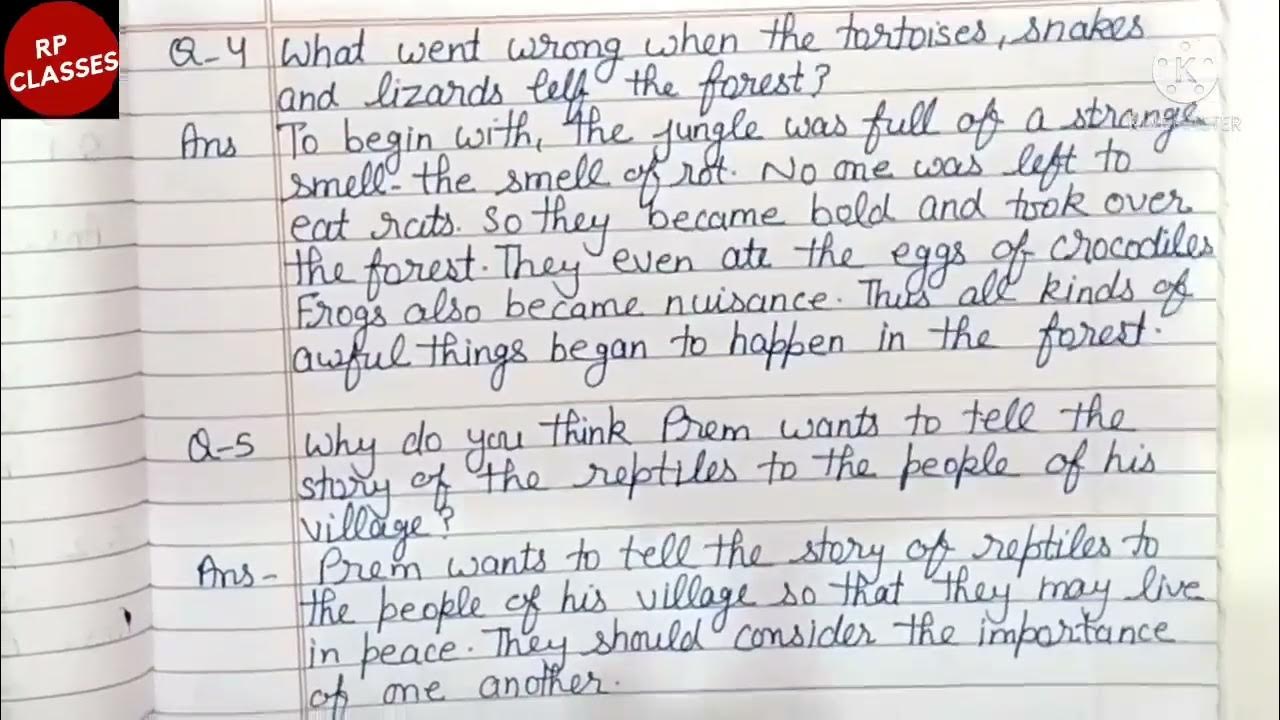 RP
CLASSES
Q-4 What went wrong when the tortoises, snakes
and lizards left the forest?
Ans To begin with, the jungle was full of a strange
smell- the smell of rot. No one was left to
eat rats. So they became bold and took over
the forest. They even ate the eggs of crocodiles
Frogs also became nuisance. Thus all kinds of
awful things began to happen in the forest.
Q-5 Why do you think Prem wants to tell the
story of the reptiles to the people of his
village?
Ans - Prem wants to tell the story of reptiles to
the people of his village so that they may live
in peace. They should consider the importance
of one another.
K